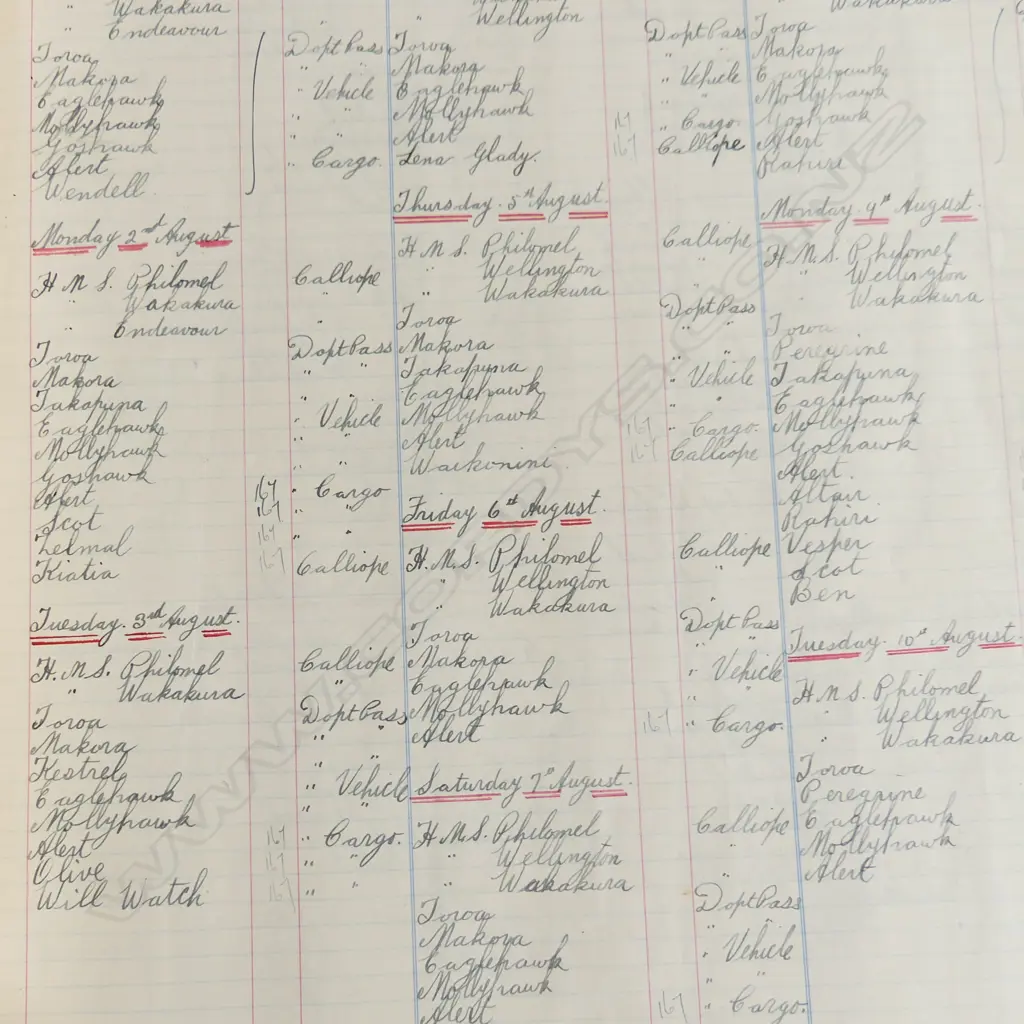 " Wakakura
" Endeavour
Toroa
Makora
Eaglehawk
Mollyhawk
Goshawk
Alert
Wendell
Monday 2nd August
H M S. Philomel Calliope
" Wakakura
" Endeavour "
Toroa Dopt Pass
Makora " "
Takapuna
Eaglehawk " Vehicle
Mollyhawk " "
Goshawk " "
Alert 167 " Cargo
Scot 167 " "
Zelmal 167 "
Kiatia 167 Calliope
Tuesday. 3rd August.
H. M. S. Philomel Calliope
" Wakakura "
Toroa Dopt Pass
Makora " "
Kestrel "
Eaglehawk " Vehicle
Mollyhawk " "
Alert 167 " Cargo.
Olive 167 " "
Will Watch 167 " "
Wellington
Dopt Pass Toroa
" " Makora
" Vehicle Eaglehawk
" " Mollyhawk
" " Alert
" Cargo. Lena Glady.
Thursday. 5th August.
H M S. Philomel Calliope
" Wellington "
" Wakakura
Toroa Dopt Pass
Makora " "
Takapuna "
Eaglehawk " Vehicle
Mollyhawk " "
Alert 167 " Cargo.
Waikonini 167 Calliope
Friday 6th August.
H. M. S. Philomel Calliope
" Wellington "
" Wakakura
Toroa Dopt Pass
Makora "
Eaglehawk " Vehicle
Mollyhawk "
Alert 167 " Cargo.
Saturday 7th August.
H M S. Philomel Calliope
" Wellington "
" Wakakura
Toroa Dopt Pass
Makora "
Eaglehawk " Vehicle
Mollyhawk "
Alert 167 " Cargo.
Wakakura
Dopt Pass Toroa
" " Makora
" Vehicle Eaglehawk
" " Mollyhawk
167 " Cargo. Goshawk
167 Calliope Alert
Rahiri
Monday. 9th August.
H. M. S. Philomel
" Wellington
" Wakakura
Toroa
Peregrine
Takapuna
Eaglehawk
Mollyhawk
Goshawk
Alert.
Altair
Rahiri
Vesper
Scot
Ben
Tuesday. 10th August.
H M S. Philomel
" Wellington
" Wakakura
Toroa
Peregrine
Eaglehawk
Mollyhawk
Alert